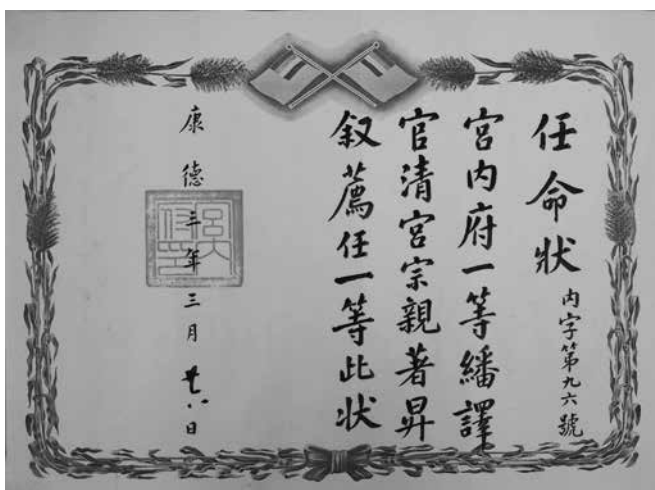 任命狀
内字第九六號
宮内府一等繙譯
官清宮宗親著昇
叙薦任一等此状
康德三年三月廿八日